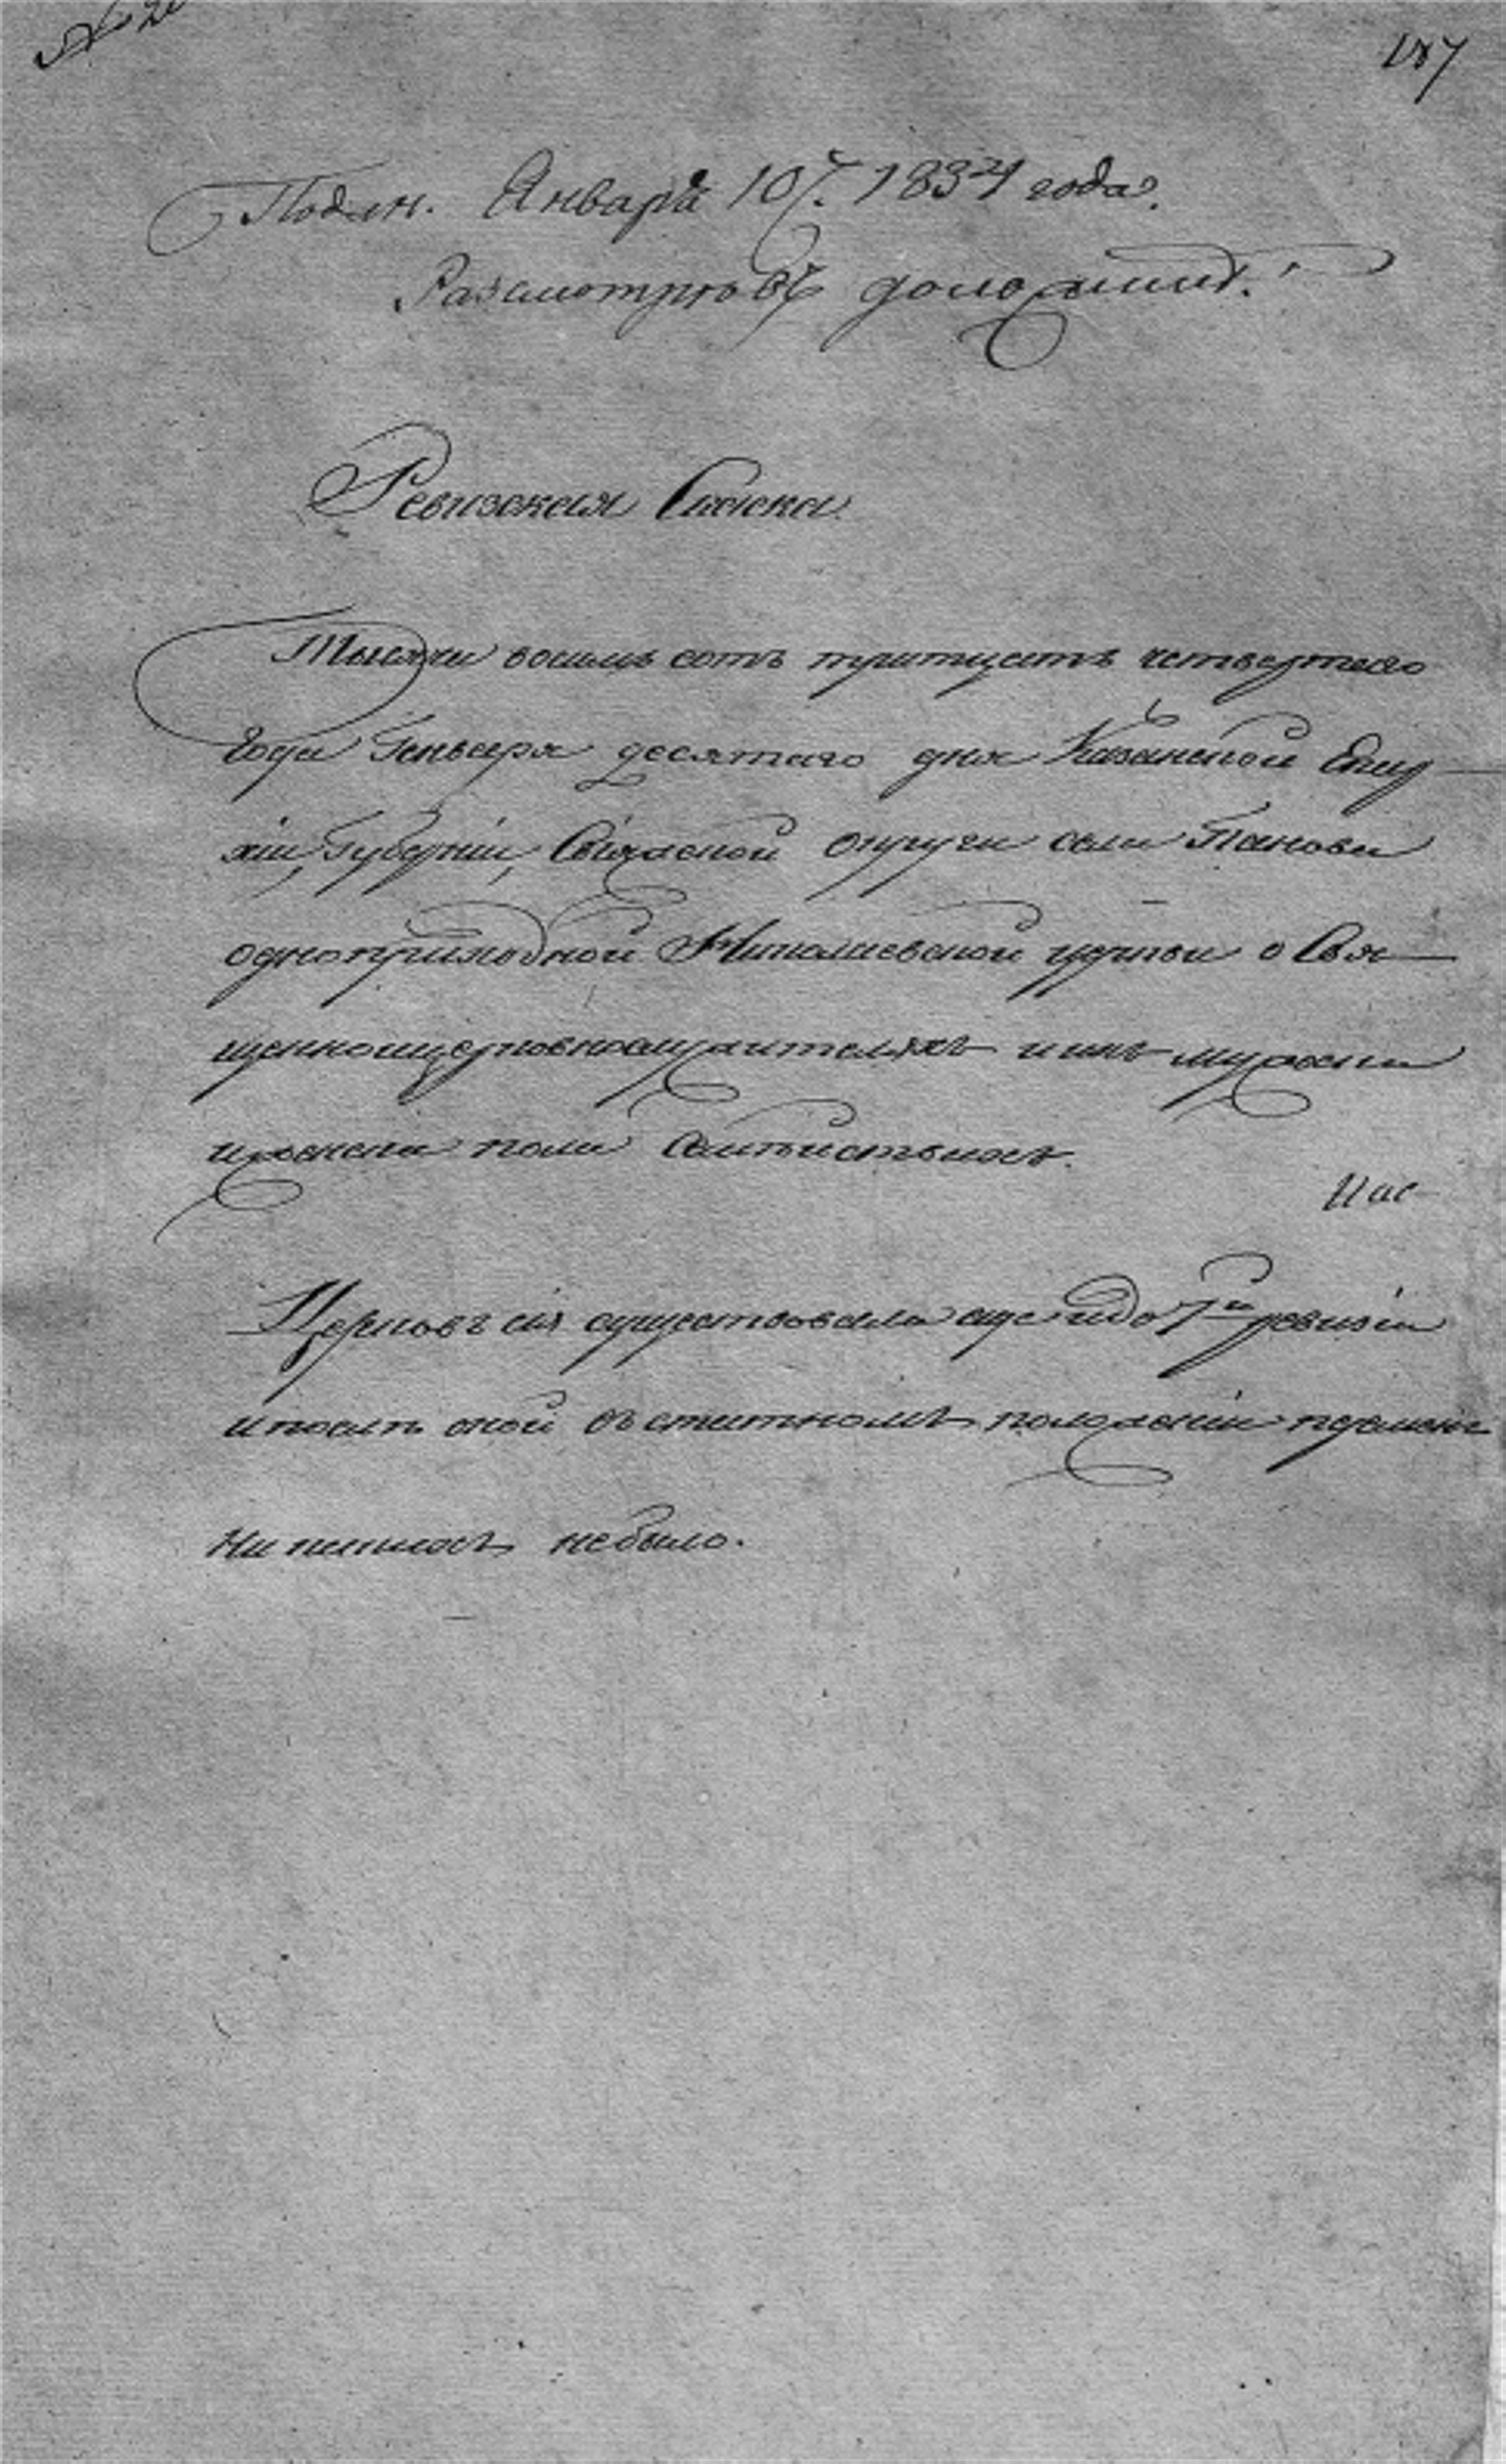 187
Подан. Января 10. 1834 года.
Разсмотревъ доложить.
Ревизская Сказка
Тысяча восемь сотъ тритцать четвертаго
Года Генваря десятаго дня Казанской Епар
хіи, Губерніи, Свіяжской округи села
одноприходной Николаевской церкви о Свя
щенноицерковнослужителяхъ и ихъ мужеска
иженска пола Семействахъ.
Церковь сія существовала еще и до 7й ревизіи
и послѣ оной въ штатномъ положеніи перемѣнъ
Ни какихъ небыло.